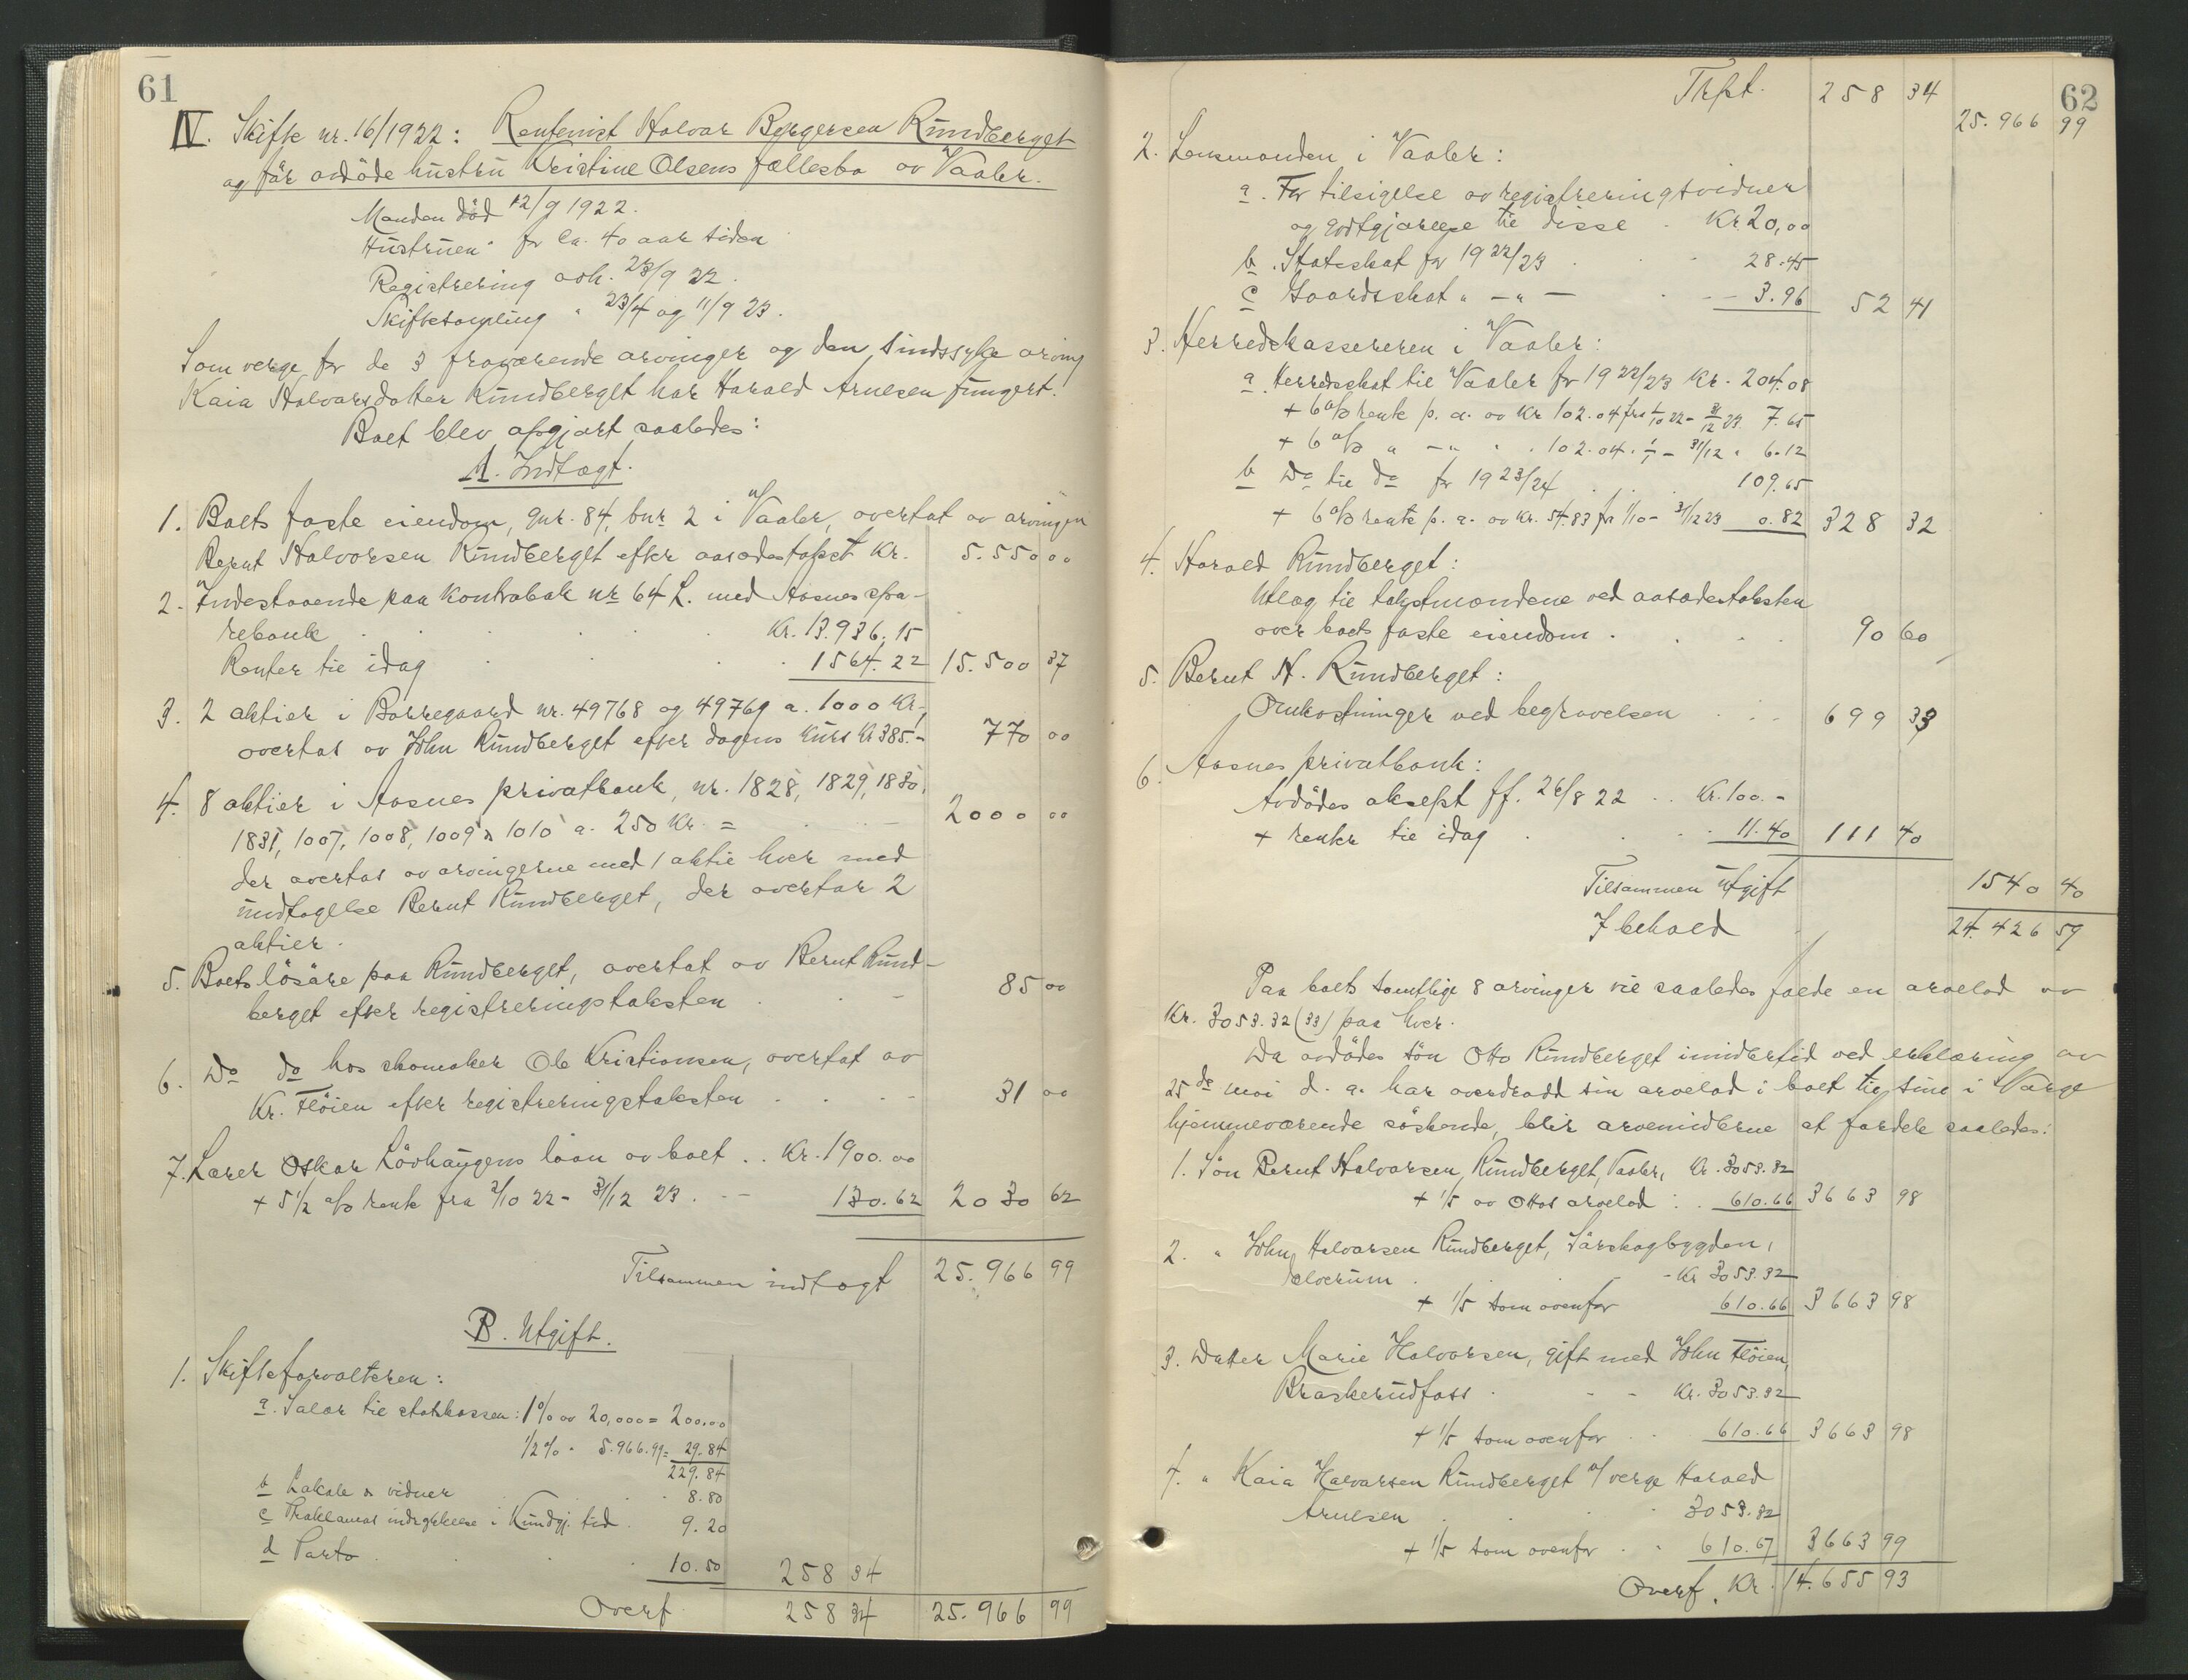 61
IV. Skifte nr. 16/1922: Rentenist Halvar Børgersen Rundberget
og før avdøde hustru Kristine Olsens fællesbo av Vaaler.
Manden død 12/9 1922.
Hustruen " for ca. 40 aar siden
Registrering avh. 23/9 22.
Skiftesamling " 23/4 og 11/9 23.
Som verge for de 3 fraværende arvinger og den sindssyke arving
Kaia Halvarsdatter Rundberget har Harald Arnesen fungert.
Boet blev opgjort saaledes:
A. Indtægt.
1. Boets faste eiendom, gnr. 84, bnr. 2 i Vaaler, overtat av arvingen
Bernt Halvorsen Rundberget efter aasædestakst Kr. 5.550 00
2. Indestaaende paa kontrabok nr. 64 L. med Aasnes spa-
rebank Kr. 13.936.15
Renter til idag 1564.22 15.500 37
3. 2 aktier i Borregaard nr. 49768 og 49769 a. 1000 Kr.,
overtas av John Rundberget efter dagens kurs Kr 385.- 770 00
4. 8 aktier i Aasnes privatbank, nr. 1828, 1829, 1830,
1831, 1007, 1008, 1009 & 1010 a. 250 Kr. = 2000 00
der overtas av arvingerne med 1 aktie hver med
undtagelse Bernt Rundberget, der overtar 2
aktier.
5. Boets løsøre paa Rundberget, overtat av Bernt Rund-
berget efter registreringstaksten 85 00
6. Do do hos skomaker Ole Kristiansen, overtat av
Kr. Fløien efter registreringstaksten 31 00
7. Lærer Oskar Løvhaugens laan av boet .. Kr. 1900.00
+ 5 1/2 % rente fra 2/10 22 - 31/12 23. 130.62 2030 62
Tilsammen indtægt 25.966 99
B. Utgift.
1. Skifteforvalteren:
a. Salær til statskassen: 1% av 20,000 = 200.00
1/2 % " 5.966.99 = 29.84
229.84
b Lokale & vidner 8.80
c Proklamas indrykkelse i Kundgj. tid. 9.20
d Porto 10.50 258 34
Overf 258 34 25.966 99
62
Trspt. 258 34
25.966 99
2. Lensmanden i Vaaler:
a. For tilsigelse av registreringsvidner
og godtgjørelse til disse . Kr 20,00
b. Statsskat for 1922/23 28.45
c Gaardsskat " -"- 3.96 52 41
3. Herredskassereren i Vaaler:
a Herredsskat til Vaaler for 1922/23 Kr. 204.08
+ 6% rente p. a. av Kr 102.04 fra 1/10 22 - 31/12 23. 7.65
+ 6% " -" " 102.04 " 1/1 - 31/12 " 6.12
b Do til do for 1923/24 109.65
+ 6% rente p. a. av Kr. 54.83 fra 1/10 - 31/12 23 0.82 328 32
4. Harald Rundberget:
Utlæg til takstmændene ved aasædestaksten
over boets faste eiendom . 90 60
5. Bernt H. Rundberget:
Omkostninger ved begravelsen 699 33
6. Aasnes privatbank:
Avdødes aksept ff. 26/8 22 .. Kr. 100.-
+ renter til idag 11.40 111 40
Tilsammen utgift 1540 40
I behold 24.426 59
Paa boets samtlige 8 arvinger vil saaledes falde en arvelod av
Kr. 3053.32 (33) paa hver.
Da avdødes søn Otto Rundberget imidlertid ved erklæring av
25de mai d. a. har overdradd sin arvelod i boet til sine i Norge
hjemmeværende søskende, blir arvemidlerne at fordele saaledes:
1. Søn Bernt Halvarsen Rundberget, Vaaler, Kr. 3053.32
+ 1/5 av Ottos arvelod : 610.66 3663 98
2. " John Halvarsen Rundberget, Sørskogbygden,
Elverum - Kr 3053.32
+ 1/5 som ovenfor 610.66 3663 98
3. Datter Marie Halvorsen, gift med John Fløien,
Braskerudfoss - - Kr. 3053.32
+ 1/5 som ovenfor 610.66 3663 98
4. " Kaia Halvarsen Rundberget v/ verge Harald
Arnesen 3053.32
+ 1/5 som ovenfor 610.67 3663 99
Overf. Kr. 14.655 93